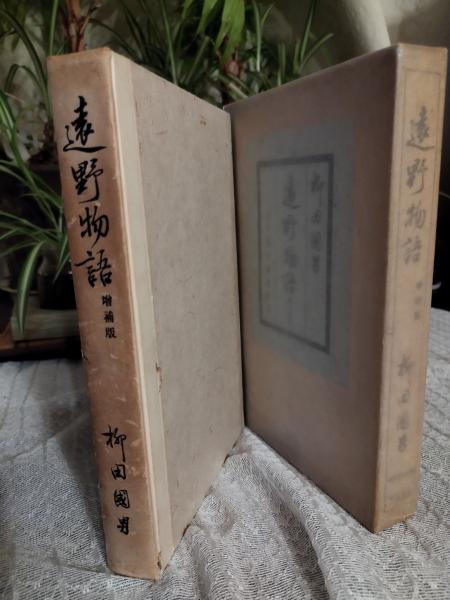 遠野物語
増補版
柳田國男
柳田國男
遠野物語
遠野物語
増補版
柳田國男